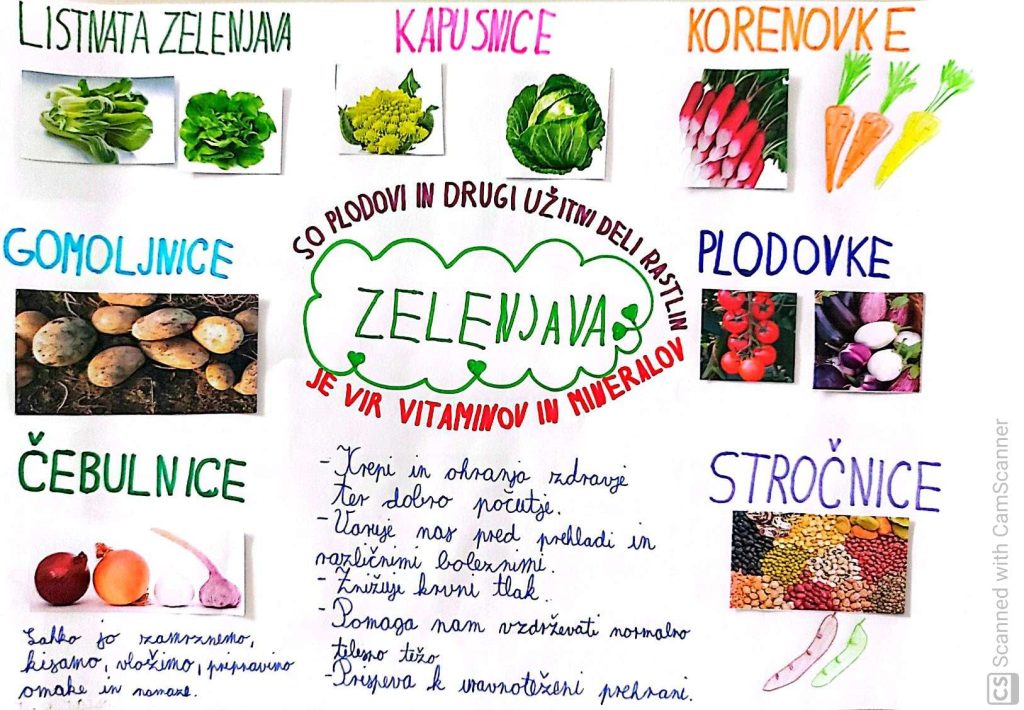 LISTNATA ZELENJAVA
KAPUSNICE
KORENOVKE
SO PLODOVI IN DRUGI UŽITNI DELI RASTLIN
GOMOLJNICE
ZELENJAVA
PLODOVKE
JE VIR VITAMINOV IN MINERALOV
ČEBULNICE
STROČNICE
- Krepi in ohranja zdravje
ter dobro počutje.
- Varuje nas pred prehladi in
različnimi boleznimi.
- Znižuje krvni tlak.
- Pomaga nam vzdrževati normalno
telesno težo
- Prispeva k uravnoteženi prehrani.
Lahko jo zamrznemo,
kisamo, vložimo, pripravimo
omake in namaze.
CS Scanned with CamScanner